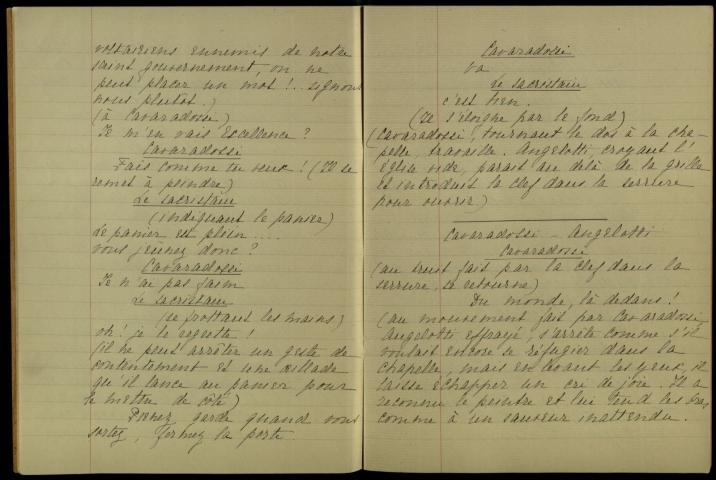 voltairiens ennemis de notre
saint gouvernement, on ne
peut placer un mot!.. signons
nous plutôt.)
(à Cavaradossi)
Je m'en vais Excellence?
Cavaradossi
Fais comme tu veux! (Il se
remet à peindre)
Le sacristain
(indiquant le panier)
Le panier est plein....
vous jeûnez donc?
Cavaradossi
Je n'ai pas faim
Le sacristain
(se frottant les mains)
oh! je le regrette!
(il ne peut arrêter un geste de
contentement et une œillade
qu'il lance au panier pour
le mettre de côté)
Prenez garde quand vous
sortez, fermez la porte.
Cavaradossi
va
Le sacristain
c'est bien.
(Il s'éloigne par le fond)
(Cavaradossi, tournant le dos à la cha-
pelle, travaille. Angelotti, croyant l'
église vide, paraît au delà de la grille
et introduit la clef dans la serrure
pour ouvrir)
Cavaradossi - Angelotti
Cavaradossi
(au bruit fait par la clef dans la
serrure, se retourne)
Du monde, là dedans!
(au mouvement fait par Cavaradossi,
Angelotti effrayé, s'arrête comme s'il
voulait encore se réfugier dans la
chapelle, mais en levant les yeux, il
laisse échapper un cri de joie. Il a
reconnu le peintre et lui tend les bras
comme à un sauveur inattendu.